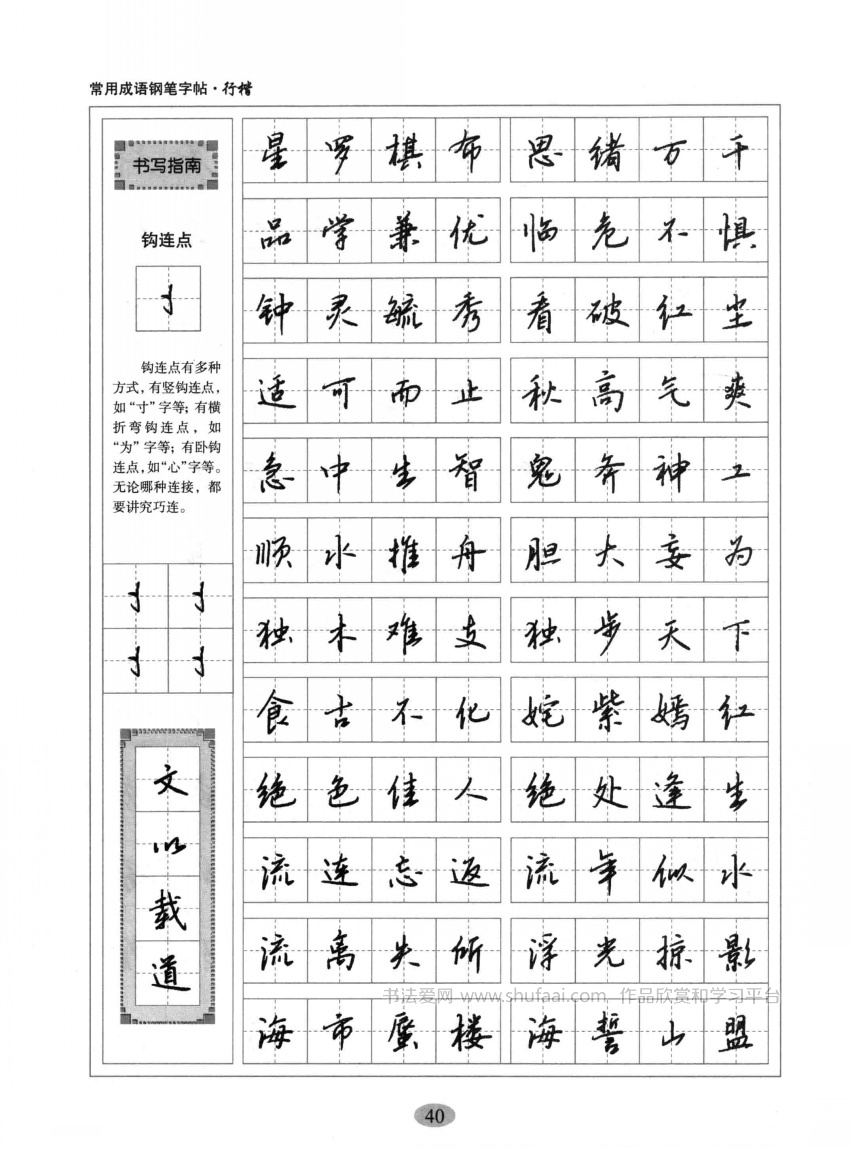 常用成语钢笔字帖·行楷
书写指南
钩连点
钩连点有多种
方式，有竖钩连点，
如“寸”字等；有横
折弯钩连点，如
“为”字等；有卧钩
连点，如“心”字等。
无论哪种连接，都
要讲究巧连。
文以载道
星罗棋布 思绪万千
品学兼优 临危不惧
钟灵毓秀 看破红尘
适可而止 秋高气爽
急中生智 鬼斧神工
顺水推舟 胆大妄为
独木难支 独步天下
食古不化 姹紫嫣红
绝色佳人 绝处逢生
流连忘返 流年似水
流离失所 浮光掠影
海市蜃楼 海誓山盟
书法爱网 www.shufaai.com 作品欣赏和学习平台
40